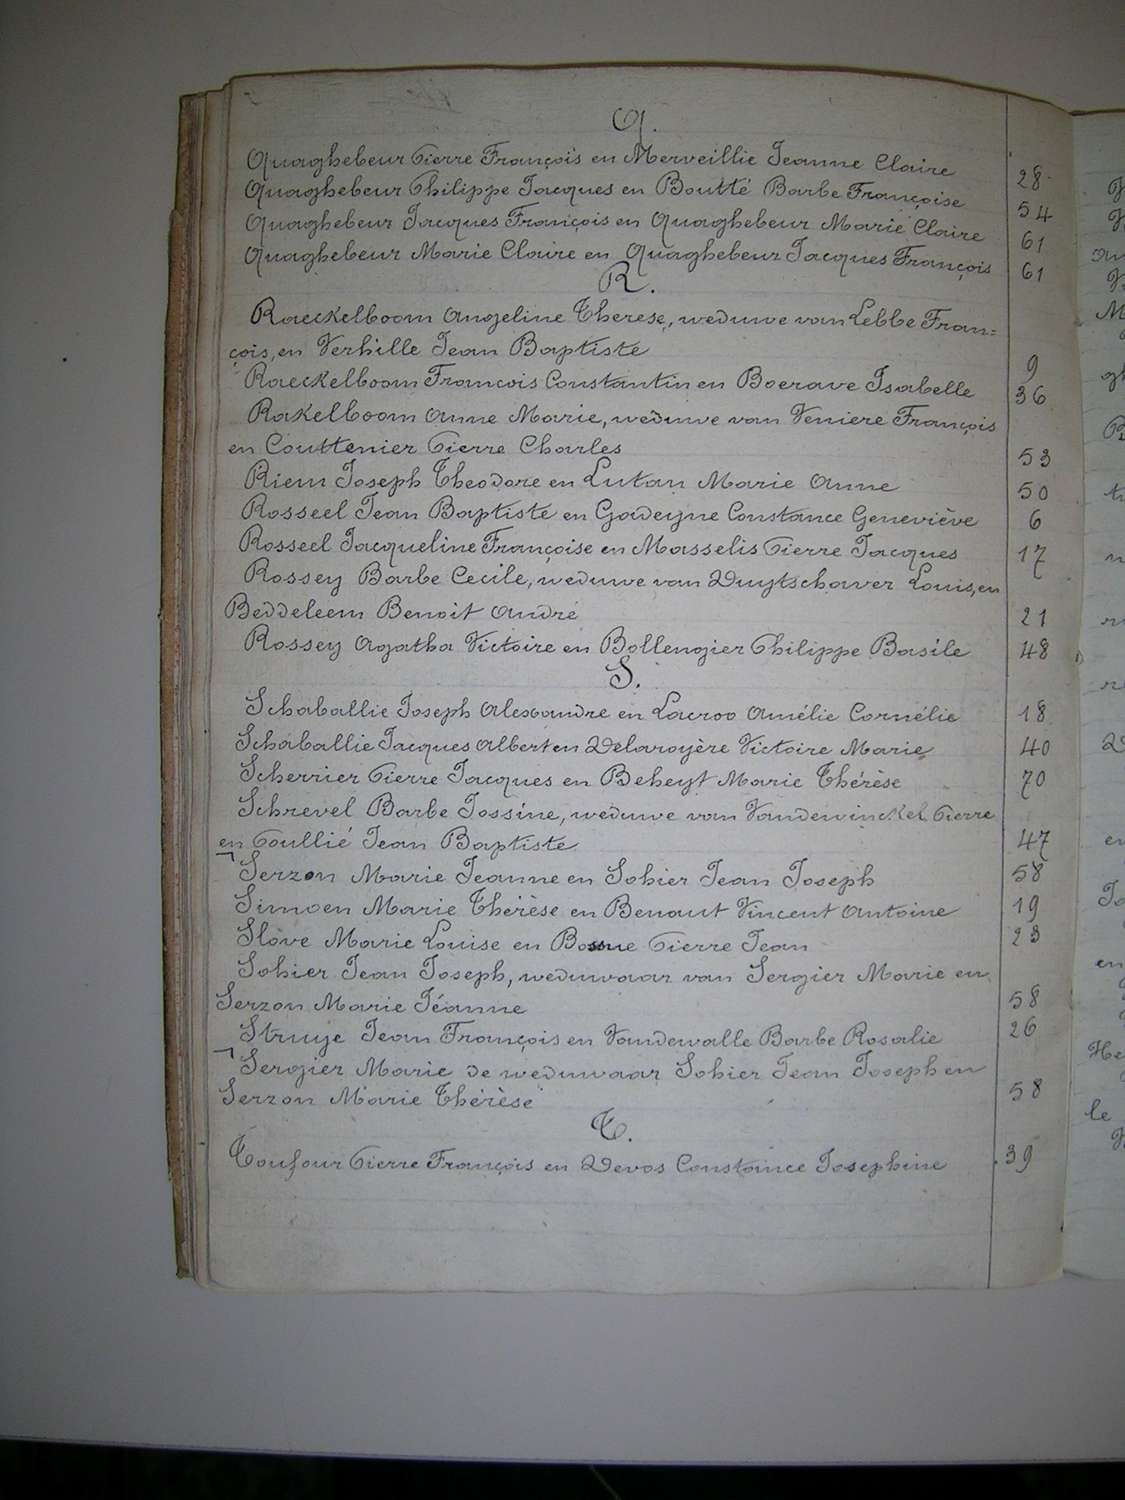 Q.
Quaghebeur Pierre François en Merveillie Jeanne Claire 28
Quaghebeur Philippe Jacques en Boutté Barbe Françoise 54
Quaghebeur Jacques François en Quaghebeur Marie Claire 61
Quaghebeur Marie Claire en Quaghebeur Jacques François 61
R.
Raeckelboom Angeline Therese, weduwe van Lebbe Fran=
çois, en Verhille Jean Baptiste 9
Raeckelboom Francois Constantin en Boerave Isabelle 36
Rakelboom Anne Marie, weduwe van Veniere François
en Couttenier Pierre Charles 53
Riem Joseph Theodore en Lutan Marie Anne 50
Rosseel Jean Baptiste en Gadeyne Constance Geneviève 6
Rosseel Jacqueline Françoise en Masselis Pierre Jacques 17
Rossey Barbe Cecile, weduwe van Duytschaver Louis, en
Beddeleem Benoit André 21
Rossey Agatha Victoire en Bollengier Philippe Basile 48
S.
Schaballie Joseph Alexandre en Lacroo Amélie Cornélie 18
Schaballie Jacques Albert en Delaroyère Victoire Marie 40
Scherrier Pierre Jacques en Beheyt Marie Thérèse 70
Schrevel Barbe Jossine, weduwe van Vandewinckel Pierre
en Poullié Jean Baptiste 47
Serzon Marie Jeanne en Sohier Jean Joseph 58
Simoen Marie Thérèse en Benaut Vincent Antoine 19
Slove Marie Louise en Bossue Pierre Jean 23
Sohier Jean Joseph, weduwaar van Sergier Marie en
Serzon Marie Jéanne 58
Struye Jean François en Vandewalle Barbe Rosalie 26
Sergier Marie de weduwaar Sohier Jean Joseph en
Serzon Marie Thérèse 58
T.
Toufour Pierre François en Devos Constance Josephine 39